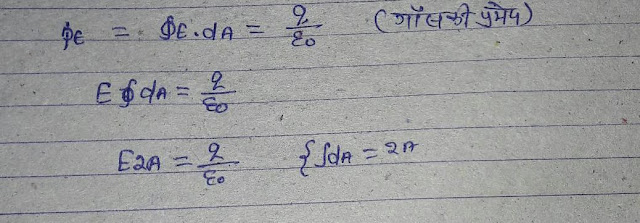 ϕE = ∮E.dA = q/ε0 (गॉस की प्रमेय)
E ∮dA = q/ε0
E2A = q/ε0 {∫dA = 2A